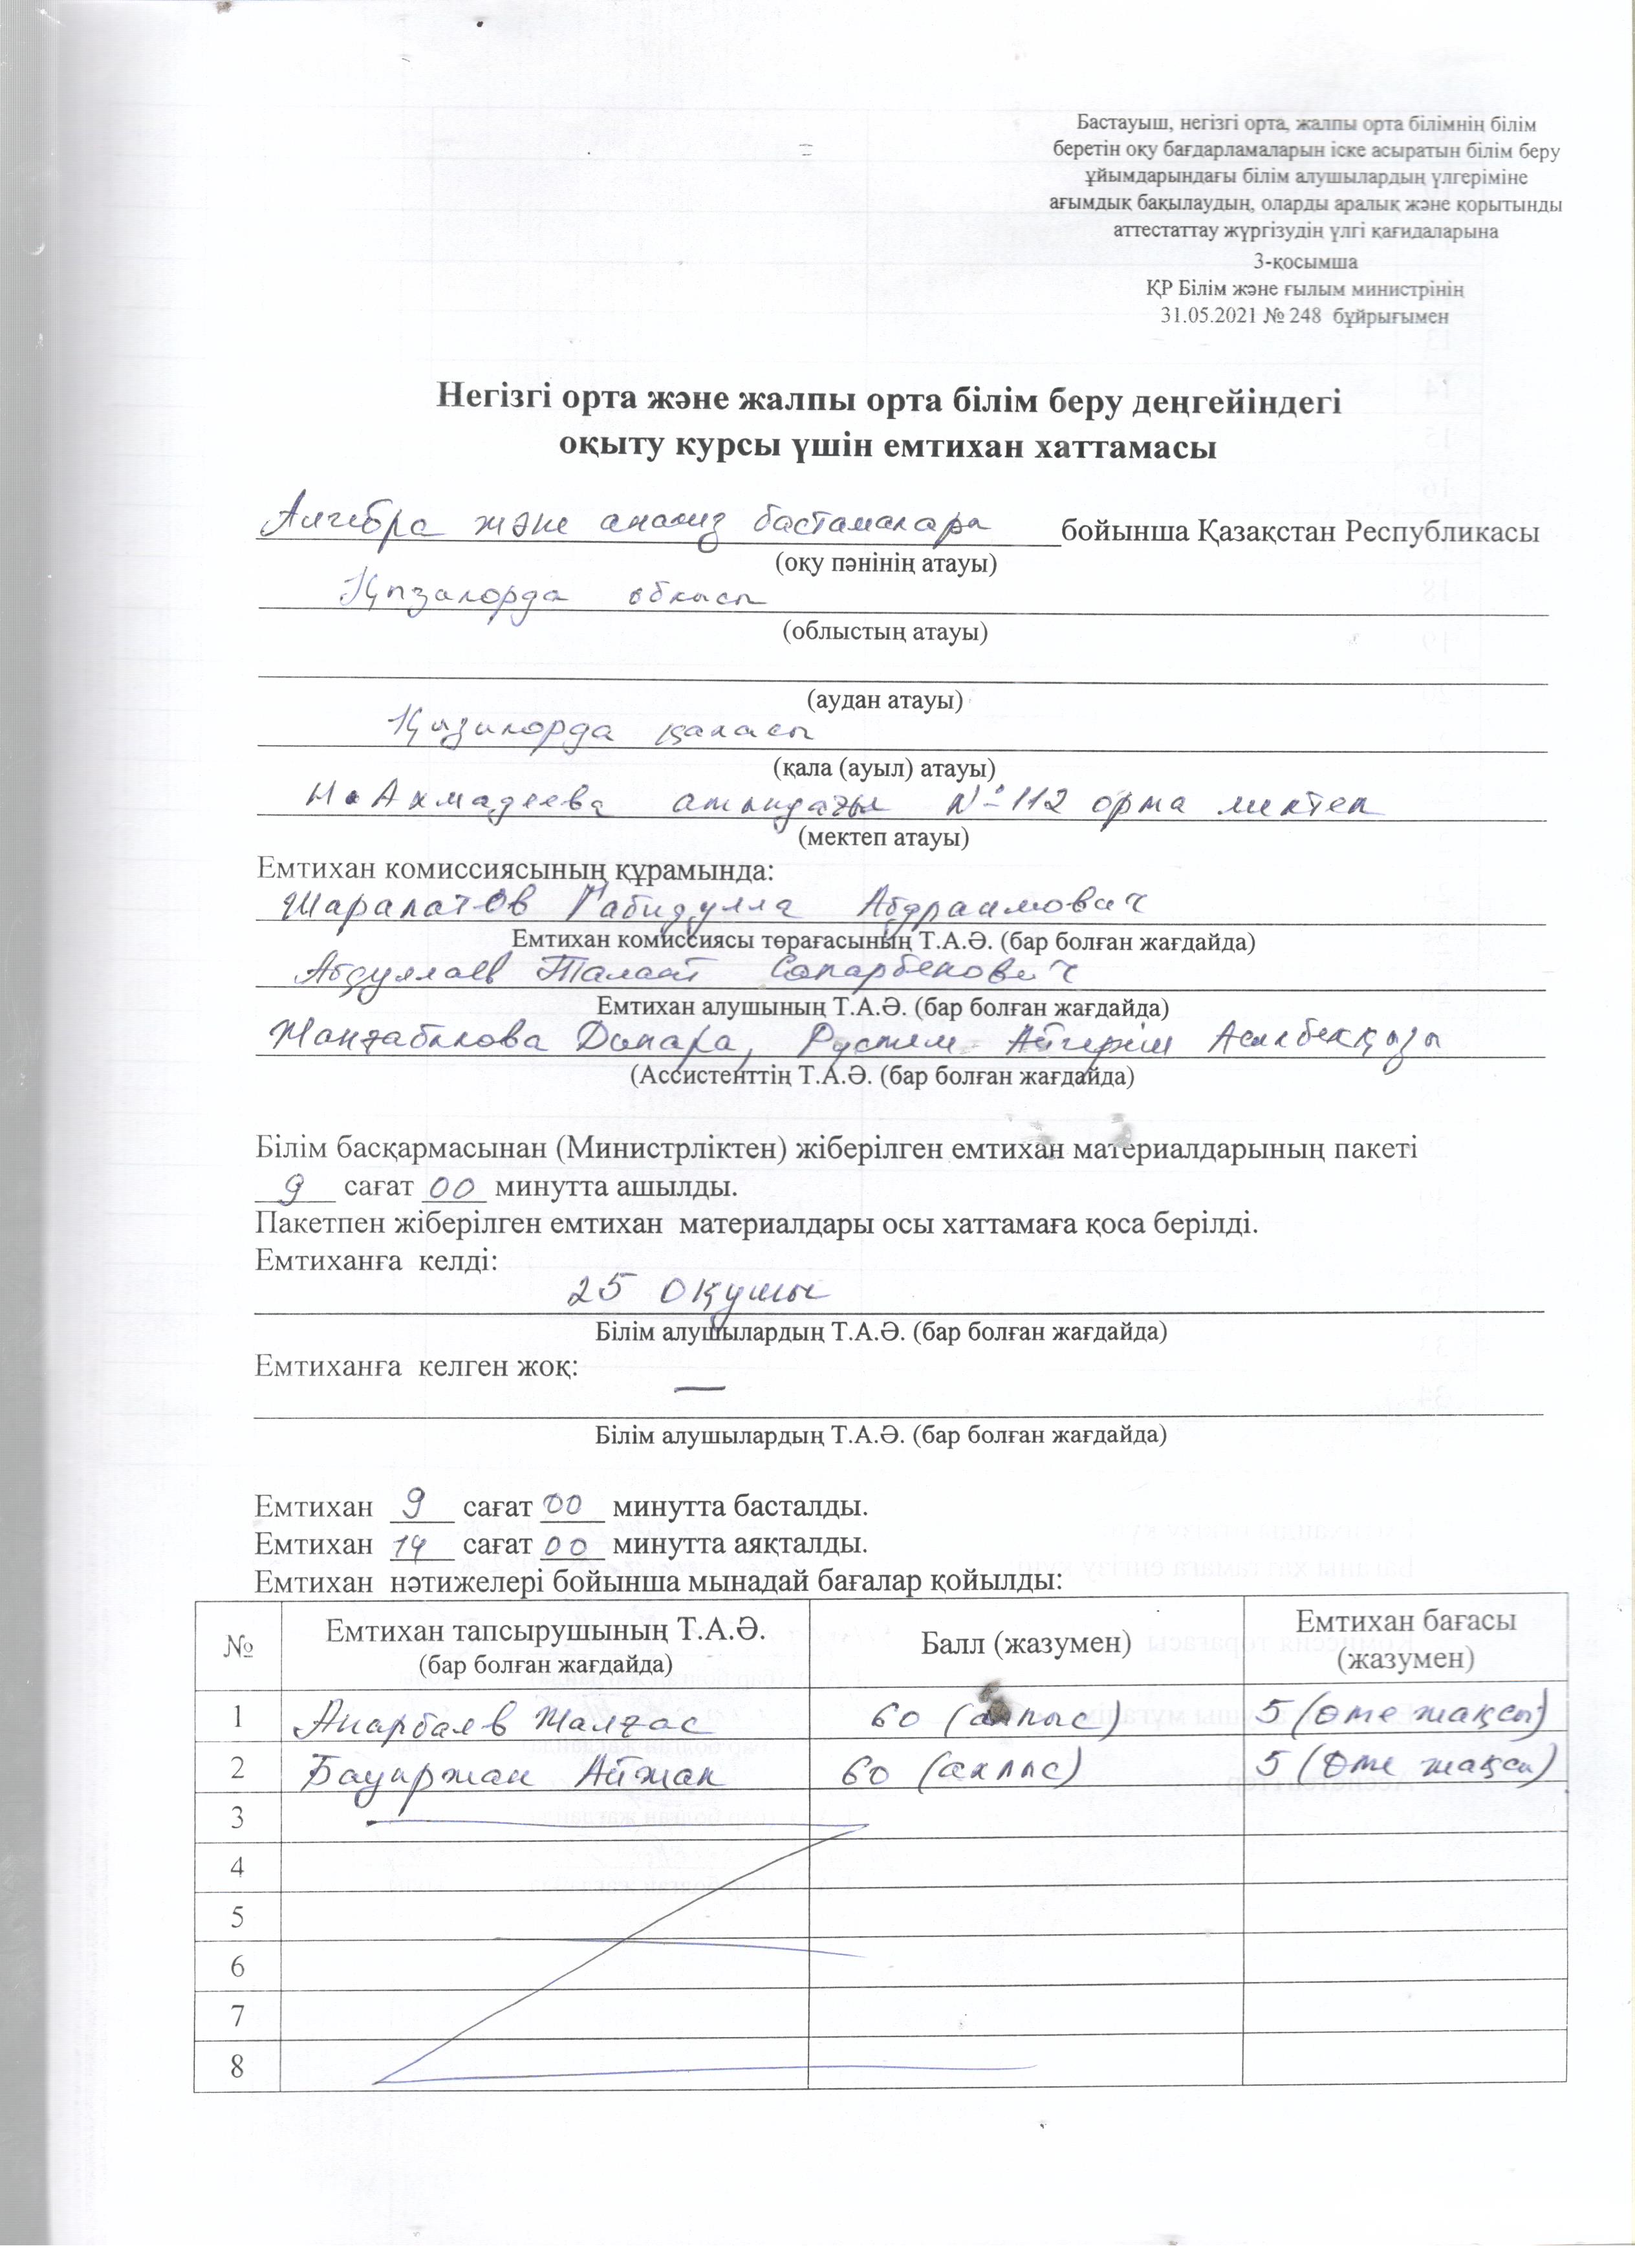 Бастауыш, негізгі орта, жалпы орта білімнің білім
беретін оқу бағдарламаларын іске асыратын білім беру
ұйымдарындағы білім алушылардың үлгеріміне
ағымдық бақылаудың, оларды аралық және қорытынды
аттестаттау жүргізудің үлгі қағидаларына
3-қосымша
ҚР Білім және ғылым министрінің
31.05.2021 № 248 бұйрығымен
Негізгі орта және жалпы орта білім беру деңгейіндегі
оқыту курсы үшін емтихан хаттамасы
Алгебра және анализ бастамалары бойынша Қазақстан Республикасы
(оқу пәнінің атауы)
Қызылорда облысы
(облыстың атауы)
(аудан атауы)
Қызылорда қаласы
(қала (ауыл) атауы)
Н. Ахмадеева атындағы №112 орта мектеп
(мектеп атауы)
Емтихан комиссиясының құрамында:
Шарапатов Ғабидулла Абдраимович
Емтихан комиссиясы төрағасының Т.А.Ә. (бар болған жағдайда)
Абдуллаев Талғат Сапарбекович
Емтихан алушының Т.А.Ә. (бар болған жағдайда)
Жанғабылова Динара, Рүстем Айгерім Асылбекқызы
(Ассистенттің Т.А.Ә. (бар болған жағдайда)
Білім басқармасынан (Министрліктен) жіберілген емтихан материалдарының пакеті
9 сағат 00 минутта ашылды.
Пакетпен жіберілген емтихан материалдары осы хаттамаға қоса берілді.
Емтиханға келді:
25 оқушы
Білім алушылардың Т.А.Ә. (бар болған жағдайда)
Емтиханға келген жоқ:
—
Білім алушылардың Т.А.Ә. (бар болған жағдайда)
Емтихан 9 сағат 00 минутта басталды.
Емтихан 14 сағат 00 минутта аяқталды.
Емтихан нәтижелері бойынша мынадай бағалар қойылды:
№ Емтихан тапсырушының Т.А.Ә. (бар болған жағдайда) Балл (жазумен) Емтихан бағасы (жазумен)
1 Анарбаев Жалғас 60 (алпыс) 5 (өте жақсы)
2 Бауыржан Айжан 60 (алпыс) 5 (өте жақсы)
3
4
5
6
7
8